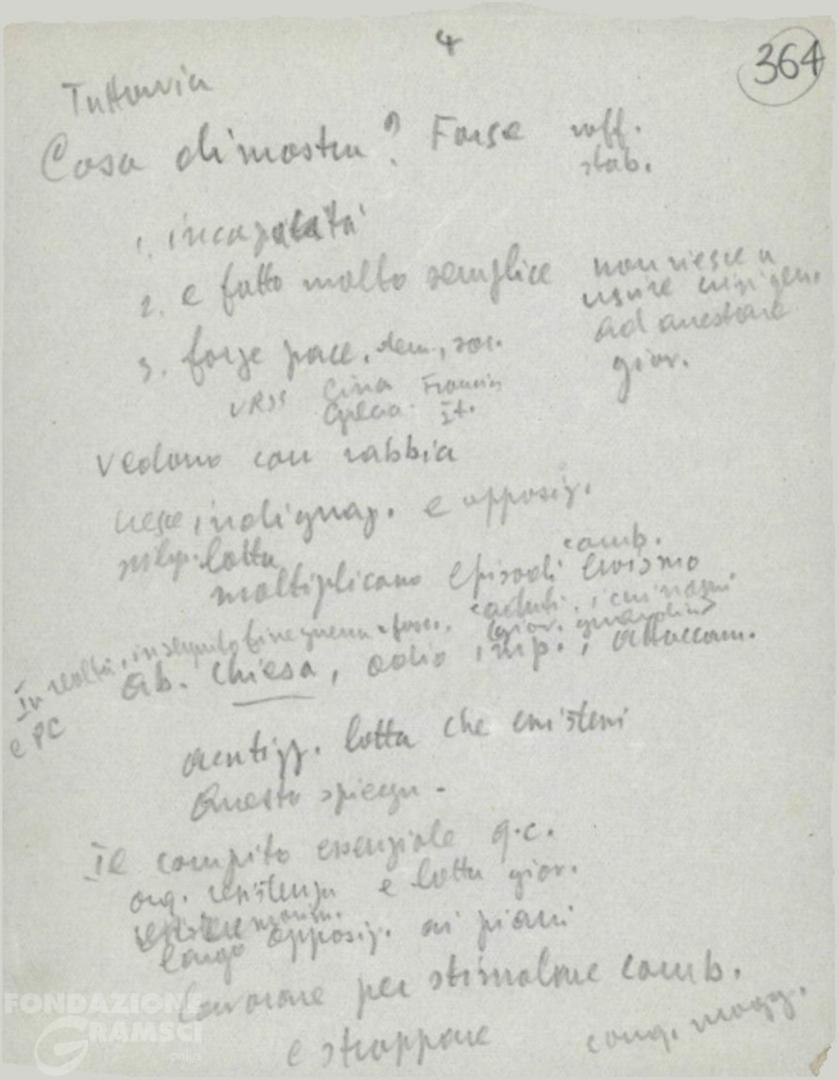 4
364
Tuttavia
Cosa dimostra? Forse raff.
stab.
1. incapacità
2. e fatto molto semplice non riesce a
uscire crisi gen.
ad arrestare
3. forze pace, dem., soc.
gior.
URSS Cina Francia
Grecia It.
Vedono con rabbia
cresce indignaz. e opposiz.
svilup. lotta
moltiplicano episodi eroismo
comb.
caduti
In realtà, in seguito fine guerra e fasc.
e PC
ab. Chiesa, odio imp., attaccam.
acutizz. lotta che
Questo spiega -
Il compito essenziale g.c.
org. resistenza e lotta giov.
largo opposiz. ai piani
Lavorare per stimolare comb.
e strappare conq. magg.
FONDAZIONE
GRAMSCI